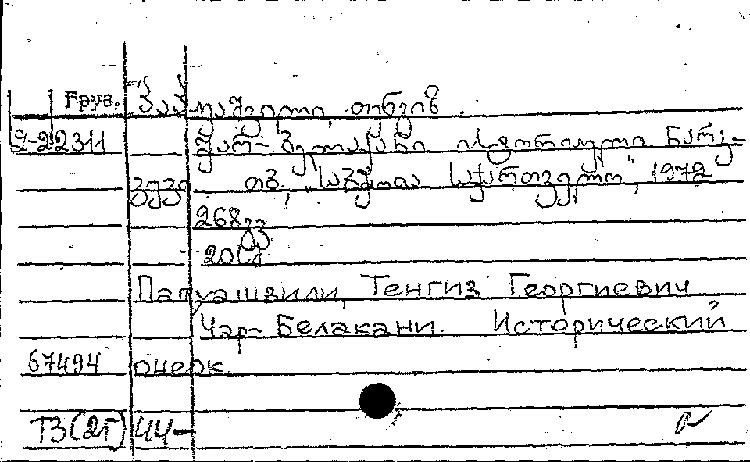 Груз. პაპუაშვილი, თენგიზ.
9-22311 ჭარ-ბელაქანი ისტორიული ნარკ-
ვევი თბ., "საბჭოთა საქართველო", 1972
268 გვ.
Папуашвили, Тенгиз Георгиевич
Чар-Белакани. Исторический
67494 очерк.
ТЗ(2Г) 44-